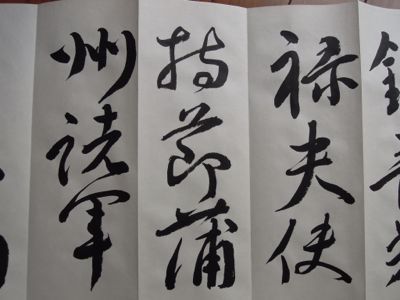 祿夫使
持節蒲
州諸軍